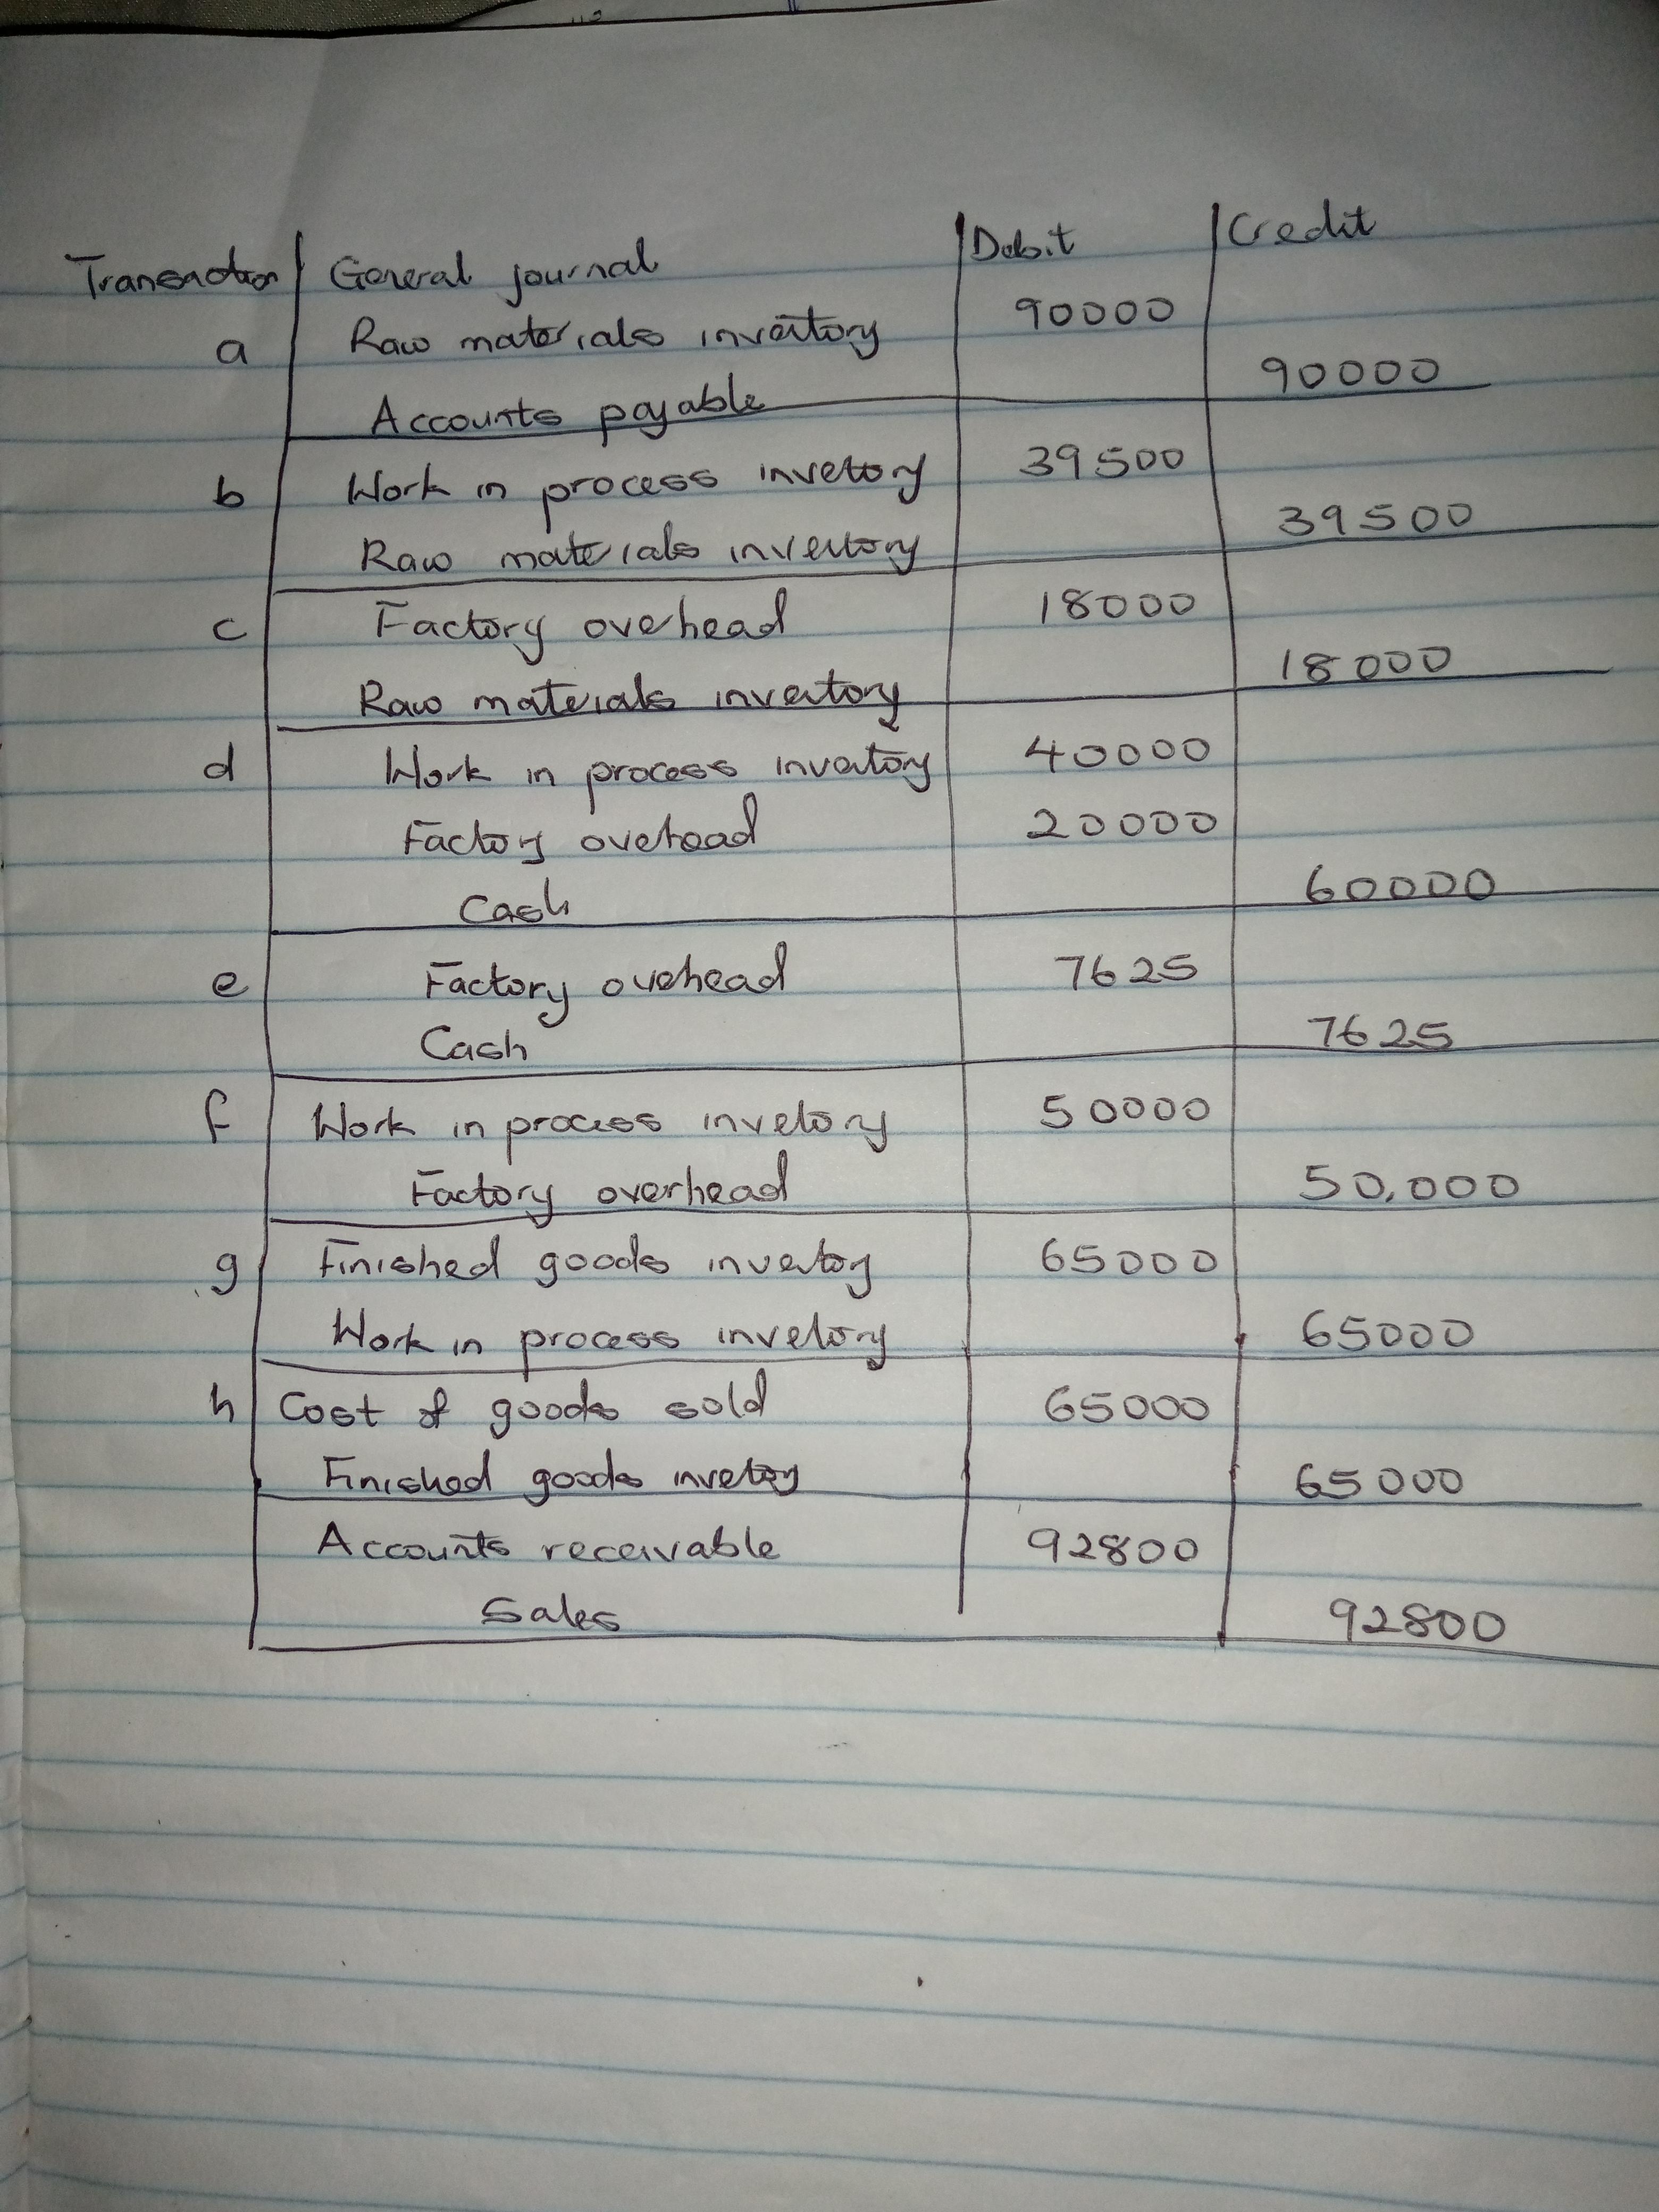 Transaction General journal Debit Credit
a Raw materials inventory 90000
Accounts payable 90000
b Work in process invetory 39500
Raw materials inventory 39500
c Factory overhead 18000
Raw materials inventory 18000
d Work in process inventory 40000
Factory overhead 20000
Cash 60000
e Factory overhead 7625
Cash 7625
f Work in process invetory 50000
Factory overhead 50,000
g Finished goods inventory 65000
Work in process invetory 65000
h Cost of goods sold 65000
Finished goods invetory 65000
Accounts receivable 92800
Sales 92800